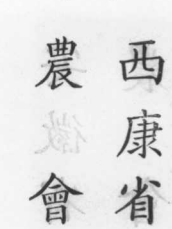 西康省
農會